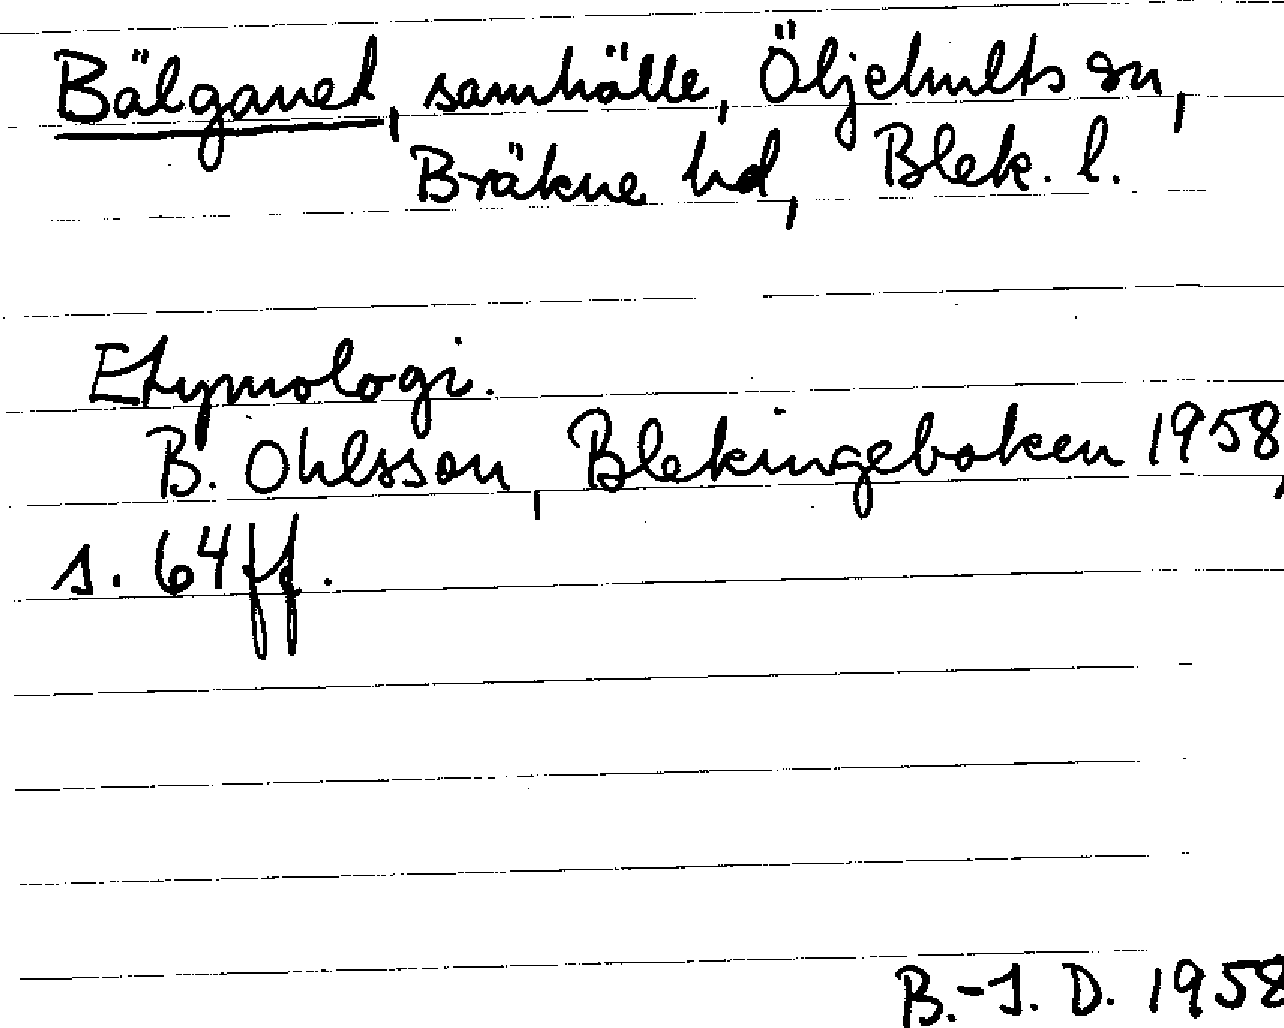 Bälganet, samhälle, Öljehults sn,
Bräkne hd, Blek. l.
Etymologi.
B. Ohlsson, Blekingeboken 1958,
s. 64ff.
B.-I. D. 1958